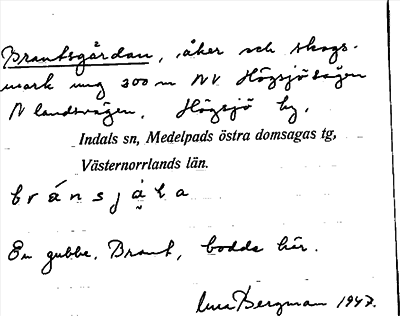 Brantsgårdan, åker och skogs-
mark ung 300 m NV Högsjösågen
N landsvägen, Högsjö by,
Indals sn, Medelpads östra domsagas tg,
Västernorrlands län.
En gubbe, Brant, bodde här.
Bergman 1947.